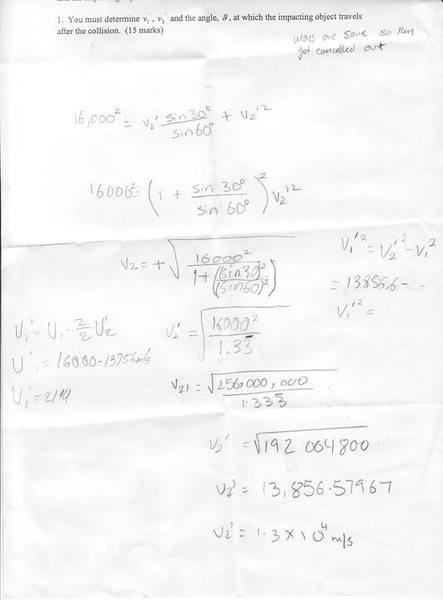 1. You must determine v₁', v₂' and the angle, θ, at which the impacting object travels
after the collision. (15 marks)
mass are same so they
get cancelled out
16,000² = v₂' sin30°/sin60° + v₂'²
16000² = (1 + sin 30°/sin 60°)² v₂'²
v₂ = +√(16000²/(1+(sin30²)/(sin60)²))
v₁'² = v₂'² - v₁²
= 13856.6 - -
v₁'² =
v₂' = √(16000²/1.33)
U₁' = U₁ - 2/2 U₂'
U'₁ = 16000-13856m/s
U₁' = 2144
v₂' = √(256,000,000/1.333)
v₂' = √192 004800
v₂' = 13,856.57967
v₂' = 1.3 × 10⁴ m/s